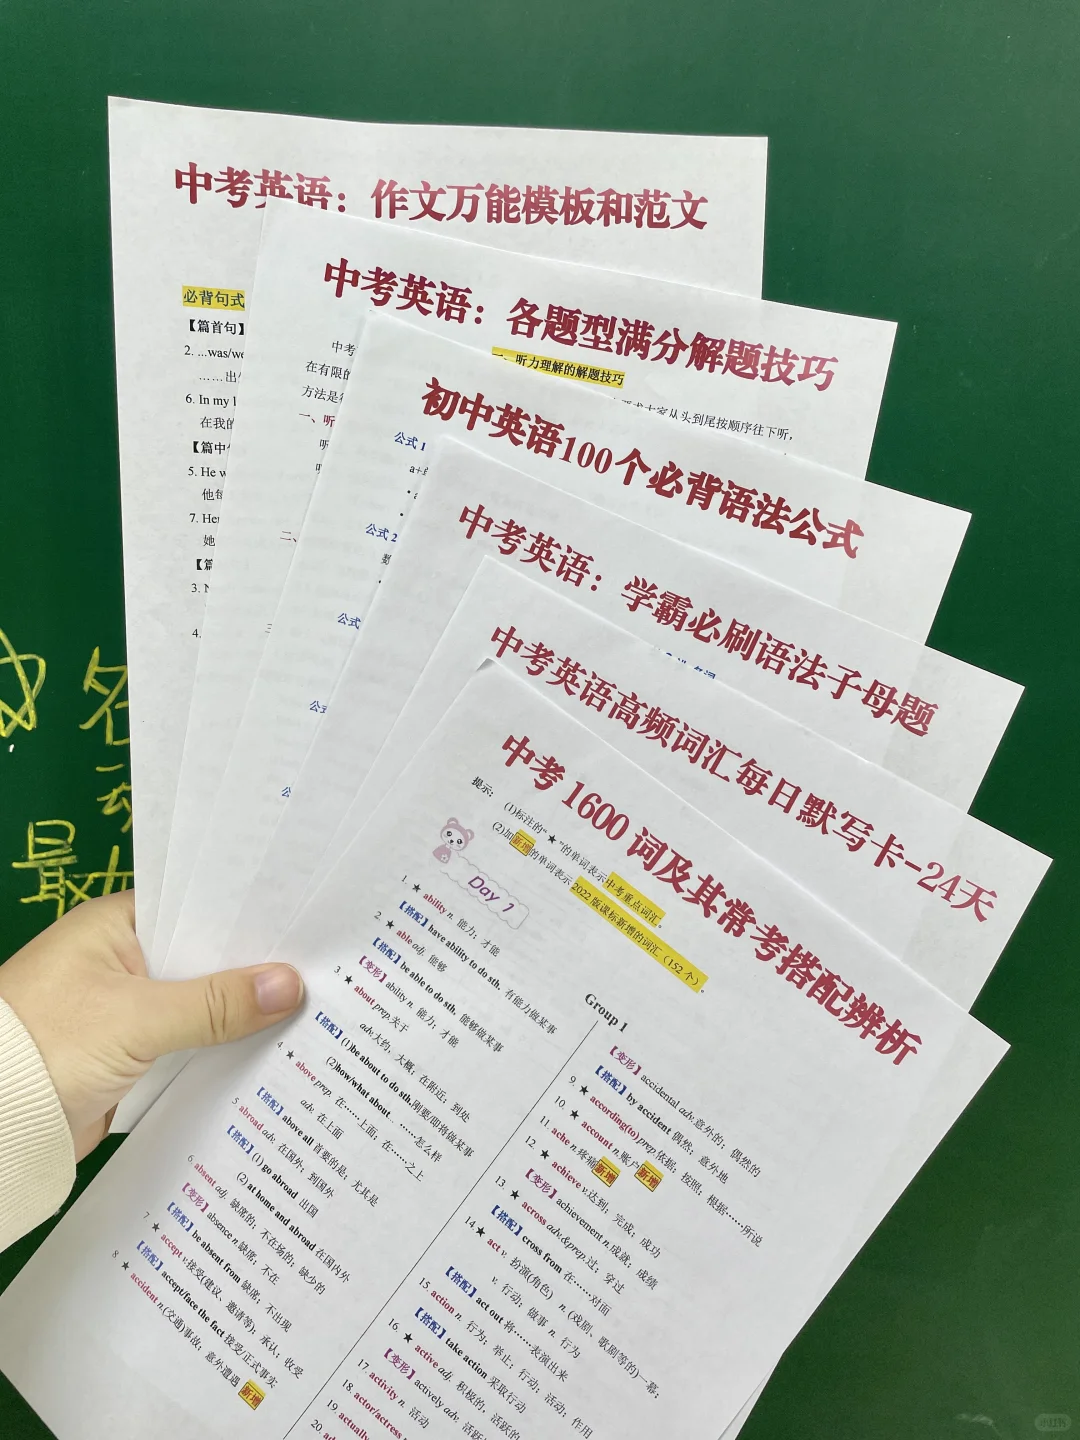 中考英语：作文万能模板和范文
必背句式
【篇首句】
2. ...was/we
……出
6. In my
在我的
【篇中
5. He w
他每
7. Her
她
【篇
3.
4.
中考英语：各题型满分解题技巧
一、听力理解的解题技巧
中考
在有限的
大家从头到尾按顺序往下听，
方法是
一、听
听
二、
三
初中英语100个必背语法公式
公式 1
公式 2
数
公式
公式
公
中考英语：学霸必刷语法子母题
中考英语高频词汇每日默写卡-24天
中考 1600 词及其常考搭配辨析
提示：
(1)标注的“★”的单词表示中考重点词汇。
(2)加新增的单词表示 2022 版课标新增的词汇（152 个）。
Day 1
Group 1
1. ★ ability n. 能力；才能
【搭配】have ability to do sth. 有能力做某事
2. ★ able adj. 能够
【搭配】be able to do sth. 能够做某事
【变形】ability n. 能力；才能
3. ★ about prep.关于
adv.大约，大概；在附近；到处
【搭配】(1)be about to do sth.刚要/即将做某事
(2)how/what about…… ……怎么样
4. ★ above prep. 在……上面；在……之上
adv. 在上面
【搭配】above all 首要的是；尤其是
5. abroad adv. 在国外；到国外
【搭配】(1) go abroad 出国
(2) at home and abroad 在国内外
6. absent adj. 缺席的；不在场的；缺少的
【变形】absence n.缺席；不在
【搭配】be absent from 缺席；不出现
7. ★ accept v.接受(建议、邀请等)；承认；收受
【搭配】accept/face the fact 接受/正式事实
8. ★ accident n.(交通)事故；意外遭遇 新增
【变形】accidental adv.意外的；偶然的
【搭配】by accident 偶然；意外地
9. ★ according(to) prep.依据；按照；根据……所说
10. ★ account n.账户 新增
11. ache n.疼痛 新增
12. ★ achieve v.达到；完成；成功
【变形】achievement n.成就；成绩
13. ★ across adv.&prep.过；穿过
【搭配】cross from 在……对面
14. ★ act v. 扮演(角色) n. (戏剧、歌剧等的)一幕；
v. 行动；做事 n. 行为
【搭配】act out 将……表演出来
15. action n. 行为；举止；行动；活动；作用
【搭配】take action 采取行动
16. ★ active adj. 积极的，活跃的
【变形】actively adv.
17. activity n. 活动
18. actor/actress
19. actually
20. ad